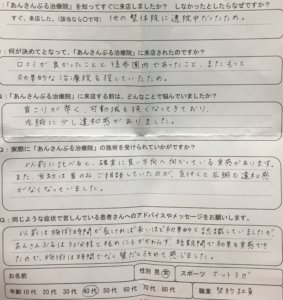 「あんさんぶる治療院」を知ってすぐに来店しましたか？ しなかったとしたらなぜですか？
すぐ、来店した。（該当なら○で可） 他の整体院に通院中だったため。
Q：何が決めてとなって、「あんさんぶる治療院」に来店されたのですか？
口コミが良かったことと徒歩圏内であったこと、またもっと
効果的な治療院を探していたため。
Q：「あんさんぶる治療院」に来店する前は、どんなことで悩んでいましたか？
首こりが辛く、可動域も狭くなってきており、
左腕に少し違和感がありました。
Q：実際に「あんさんぶる治療院」の施術を受けられていかがですか？
以前に比べると、確実に良い方向へ向かっている実感があります。
また、当初は首のみご相談していたのが、気付くと左腕も違和感
がなくなっていました。
Q：同じような症状で苦しんでいる患者さんへのアドバイスやメッセージをお願いします。
以前は施術時間が長ければ長いほど効果的と認識していましたが
あんさんぶるは30分程で極めにしかからず、短期間で効果を実感でき
たので、施術は時間でなく質だと改めて感じました。
お名前 性別 男 女 スポーツ ホットヨガ
年齢 10代 20代 30代 40代 50代 60代 70代 80代 職業 契約社員